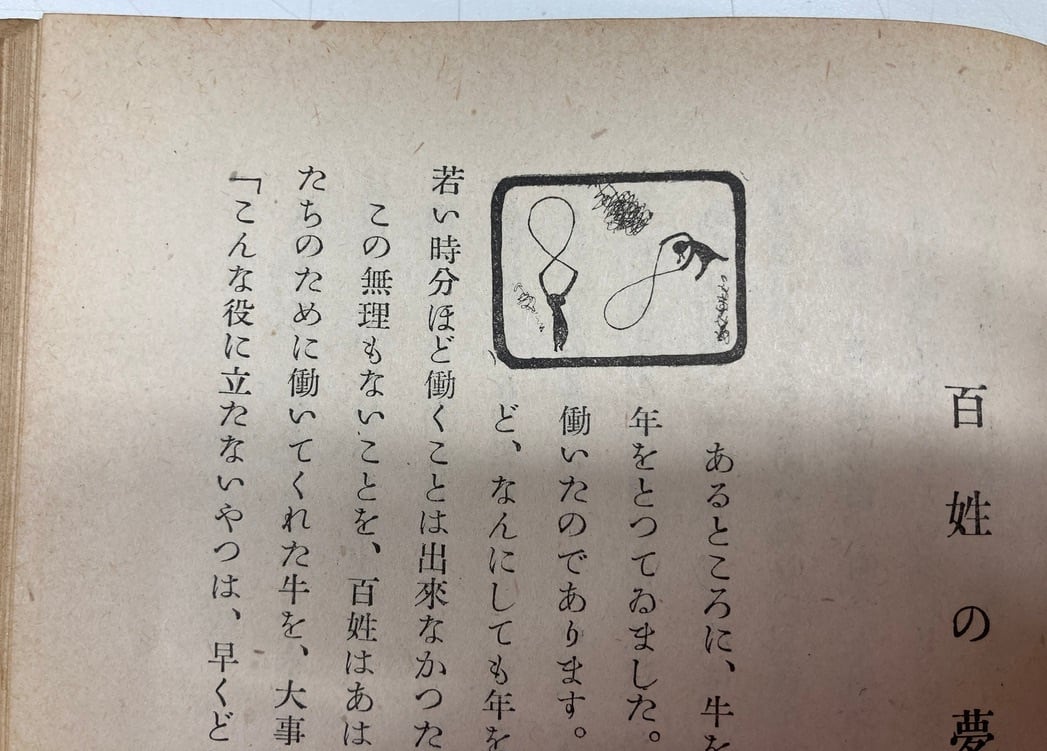 百姓の夢
あるところに、牛を
年をとつてゐました。
働いたのであります。
ど、なんにしても年を
若い時分ほど働くことは出來なかつた
この無理もないことを、百姓はあは
たちのために働いてくれた牛を、大事
「こんな役に立たないやつは、早くど